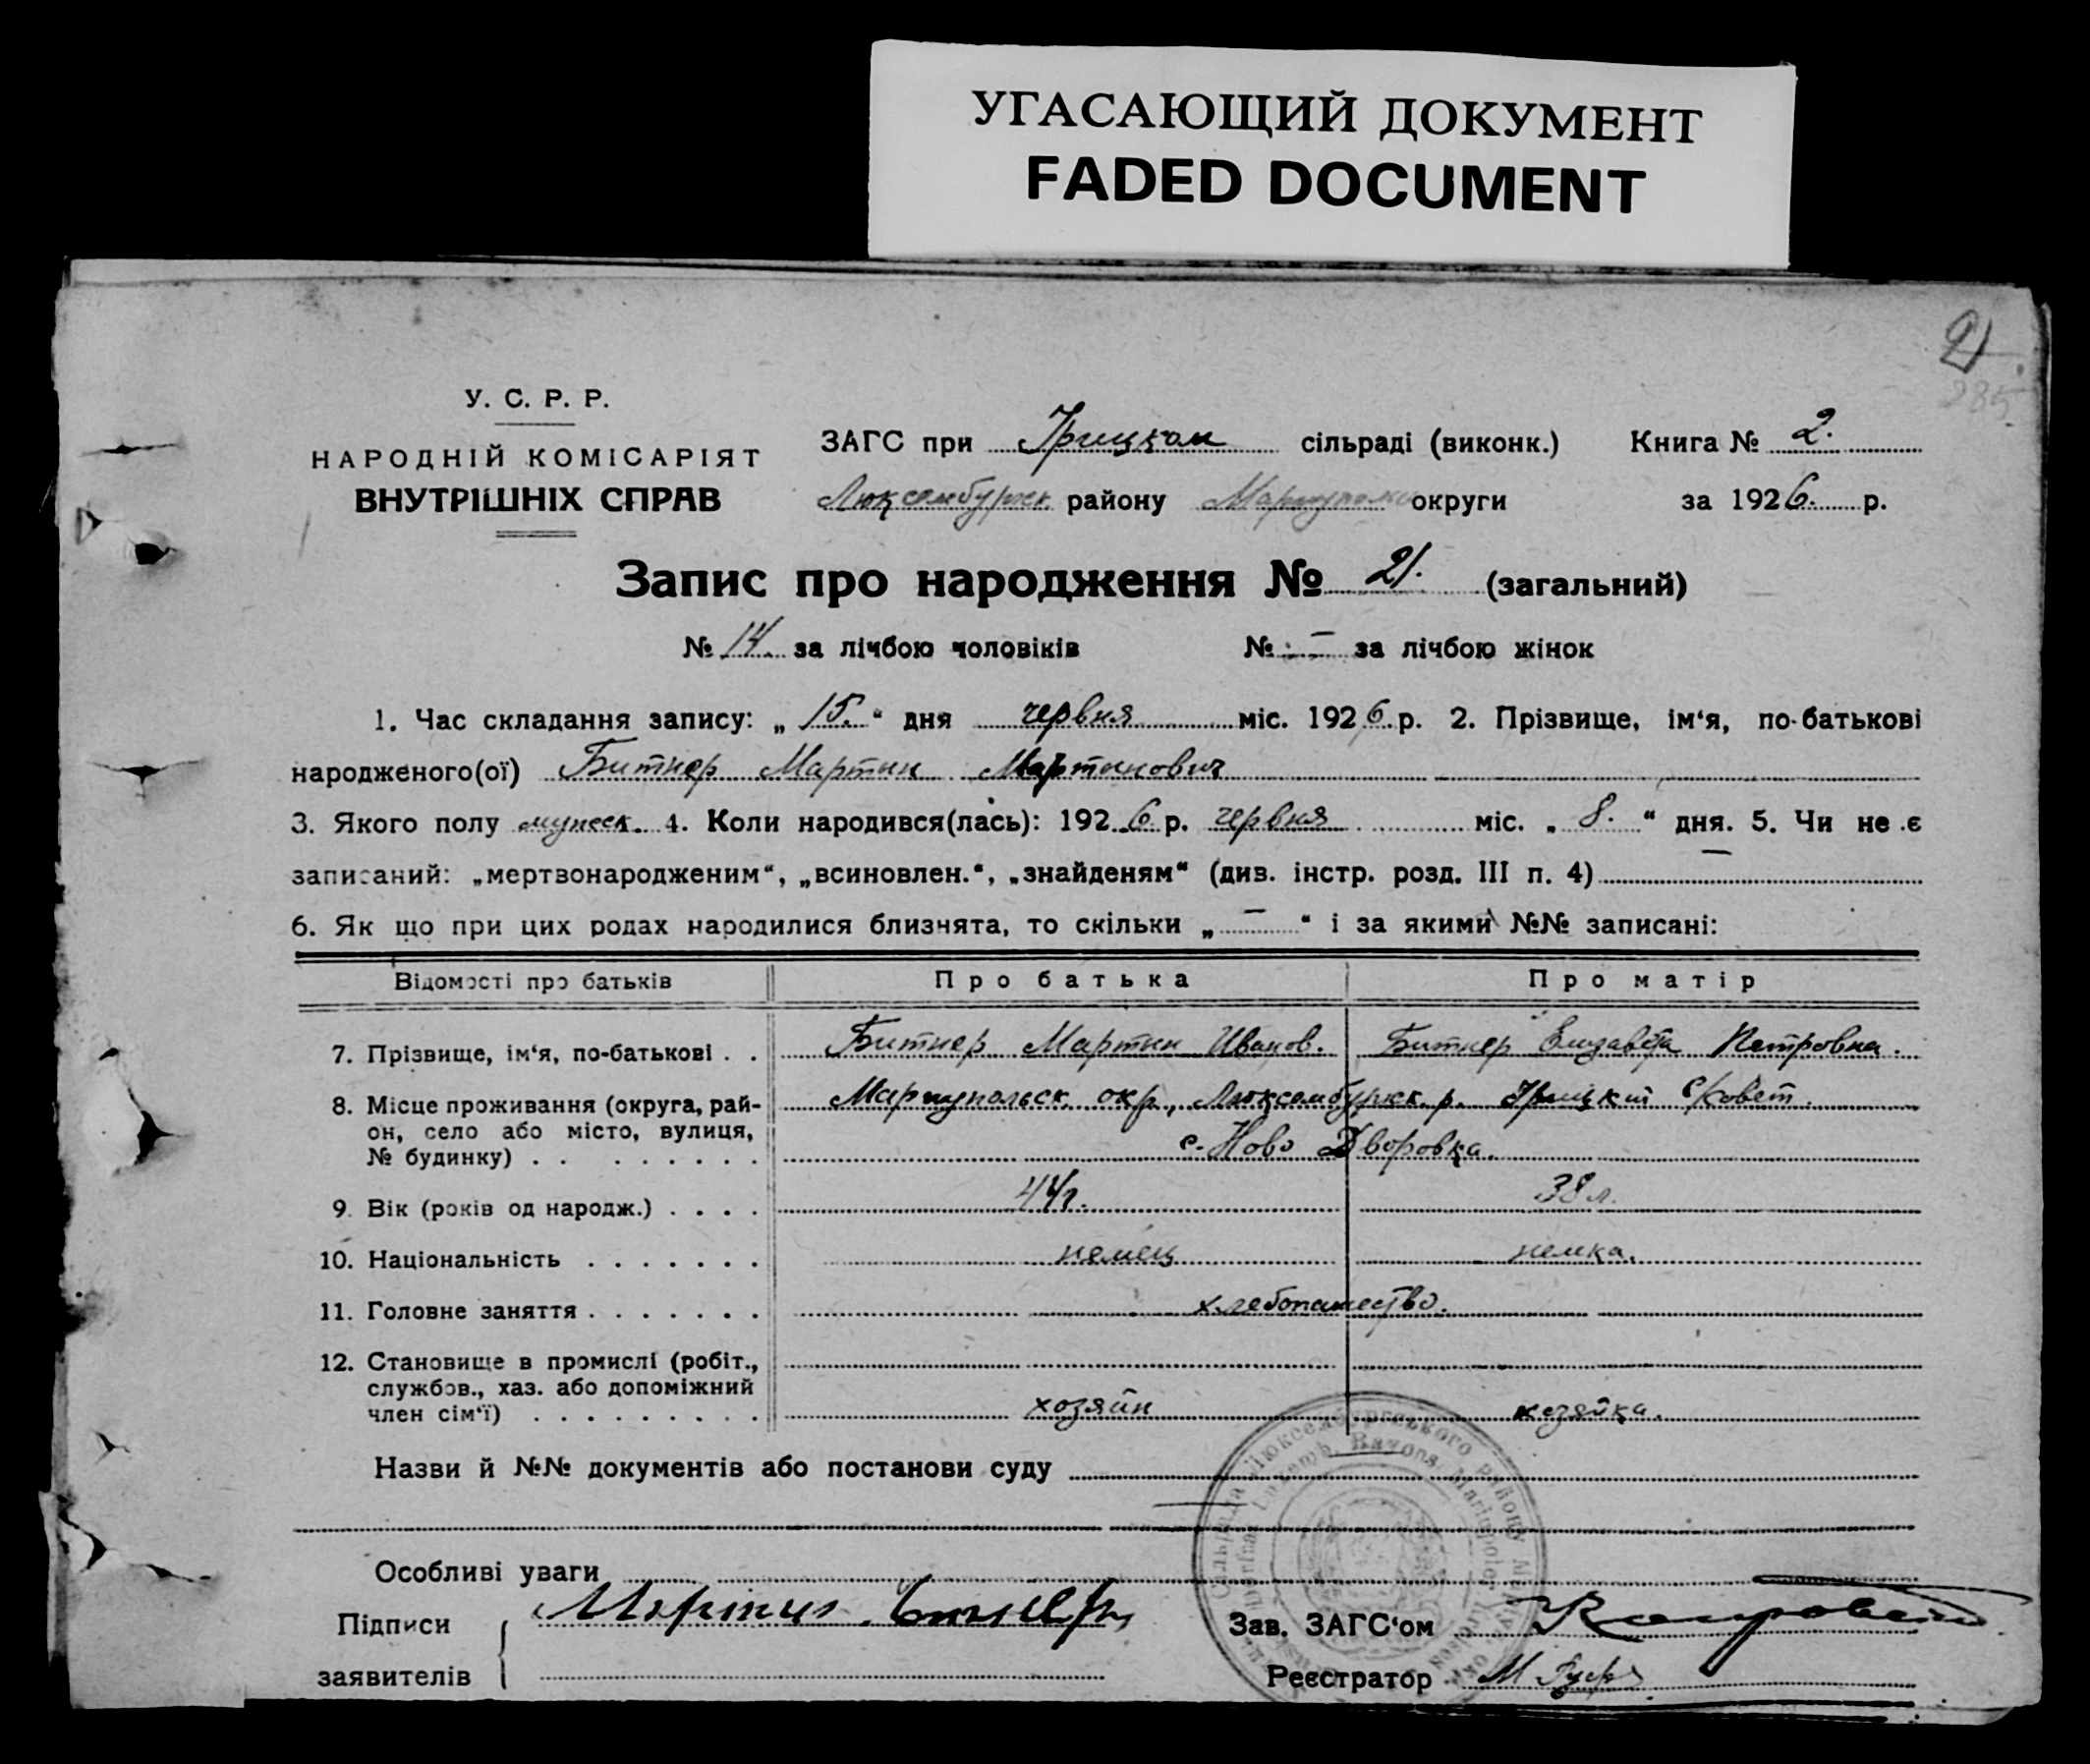 УГАСАЮЩИЙ ДОКУМЕНТ
FADED DOCUMENT
21
285
У. С. Р. Р.
НАРОДНІЙ КОМІСАРІЯТ
ВНУТРІШНІХ СПРАВ
ЗАГС при Грицком сільраді (виконк.) Книга № 2.
Люксембургск. району Мариупольс округи за 1926. р.
Запис про народження № 21. (загальний)
№ 14. за лічбою чоловіків № – за лічбою жінок
1. Час складання запису: „ 15. “ дня червня міс. 1926 р. 2. Прізвище, ім‘я, по-батькові
народженого(ої) Битнер Мартин Мартинович
3. Якого полу мужеск. 4. Коли народився(лась): 1926 р. червня міс. „ 8. “ дня. 5. Чи не є
записаний: „мертвонародженим“, „всиновлен.“, „знайденям“ (див. інстр. розд. III п. 4) –
6. Як що при цих родах народилися близнята, то скільки „ – “ і за якими №№ записані:
Відомості про батьків Про батька Про матір
7. Прізвище, ім‘я, по-батькові . . Битнер Мартин Иванов. Битнер Елизавета Петровна.
8. Місце проживання (округа, рай- Мариупольск. окр., Люксембургск. р. Грицкий с/совет.
он, село або місто, вулиця,
№ будинку) . . . . . . . . с. Ново Дворовка.
9. Вік (років од народж.) . . . . 44г. 38 л.
10. Національність . . . . . . . немец немка.
11. Головне заняття . . . . . . . хлебопашество.
12. Становище в промислі (робіт.,
службов., хаз. або допоміжний
член сім‘ї) . . . . . . . . . хозяйн хозяйка.
Назви й №№ документів або постанови суду
Особливі уваги
Підписи Мартин Битнер
заявителів
Зав. ЗАГС‘ом
Реєстратор М